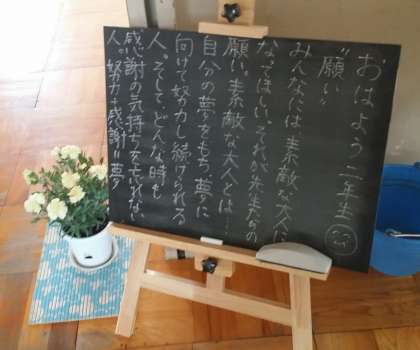 おはよう二年生
"願い"
みんなには、素敵な大人に
なってほしい。それが先生たちの
願い。素敵な大人とは…
自分の夢をもち、夢に
向けて努力し続けられる
人、そして、どんな時も
感謝の気持ちを忘れない
人。努力+感謝=夢